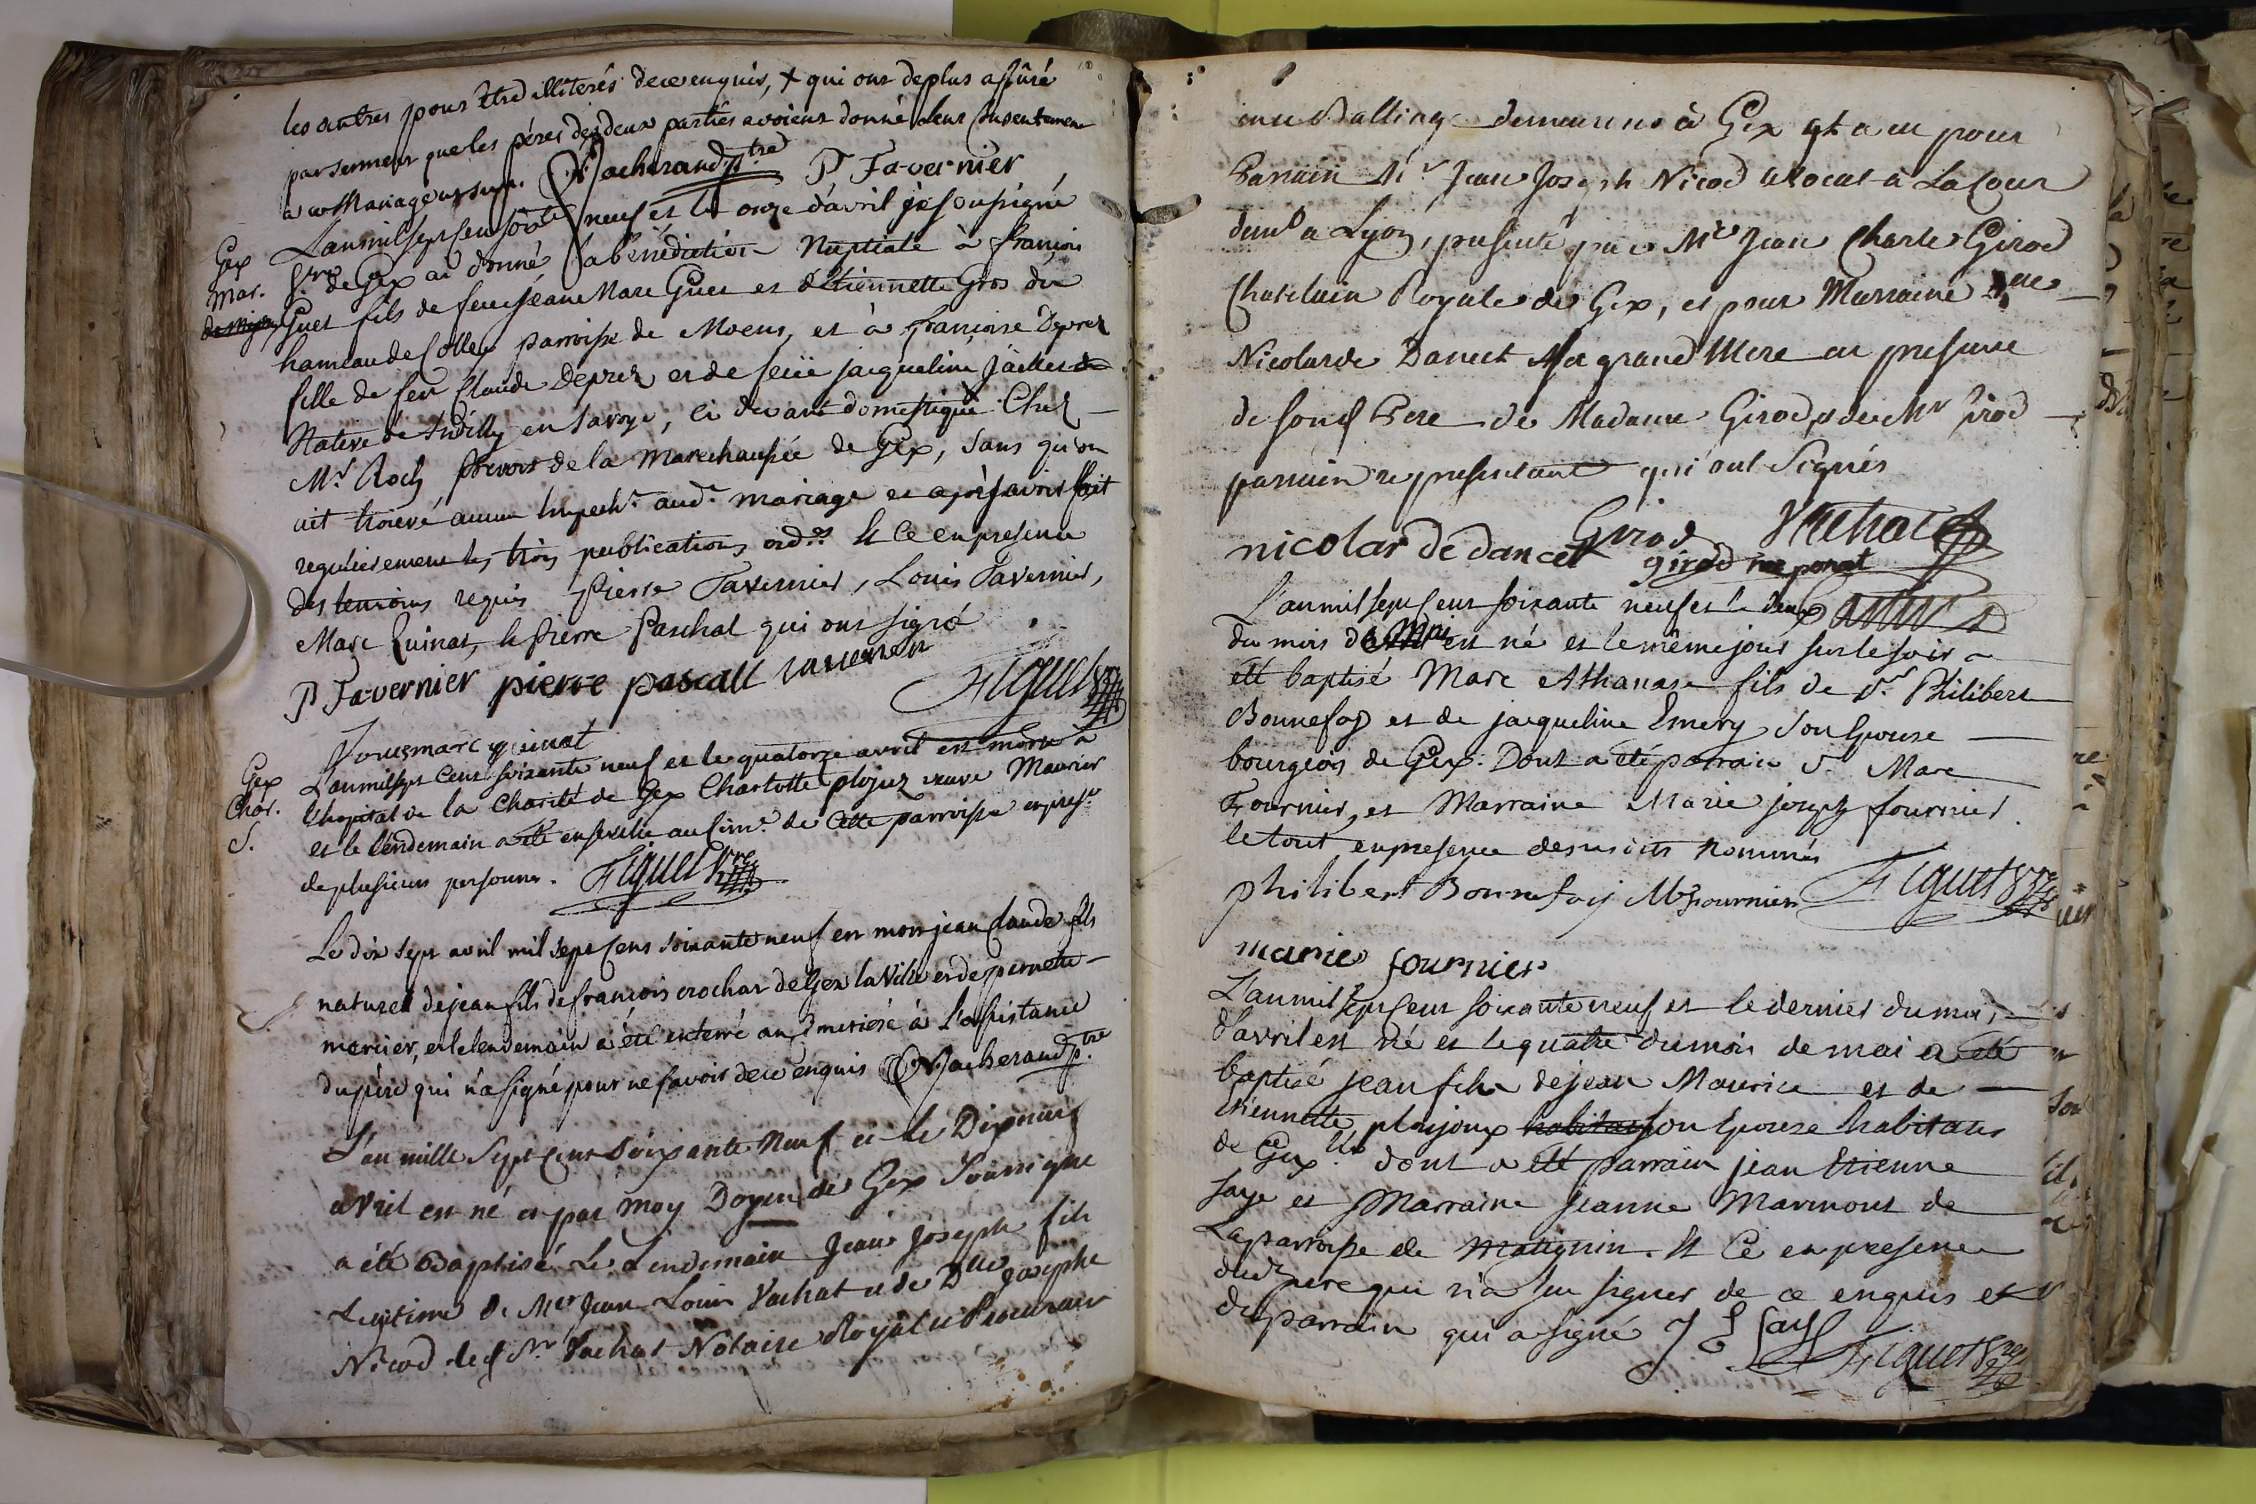 les autres pour être illiterés de ce enquis, & qui ont deplus assûré
par serment que les péres des deux parties avoient donné leur Consentement
a ce Mariage
Vacherand ptre P Tavernier
Gex L'an mil sept cent soixte neuf et le onze d'avril je soussigné
Mar. de Gex ai donné la bénédiction Nuptiale à françois
Guet fils de feu jean Marc Guet et d'Etiennette Gros du
hameau de Collex parroisse de Moens, et à françoise Deprez
fille de feu Claude Deprez et de feüe jacqueline
Native de Andilly en Savoye, ci devant domestique Chez
Mr Roch prevost de la Marechaussée de Gex, sans qu'on
ait trouvé aucun Empecht. aud. mariage et après avoir fait
regulierement les trois publications ordres Et Ce en presence
des temoins requis Pierre Tavernier, Louis Tavernier,
Marc Quinat, le pierre Paschal qui ont signé
P Tavernier pierre pascall tavernier
Figuet
marc quinat
Gex L'an mil sept Cent soixante neuf et le quatorze avril est morte à
Char. l'hopital de la Charité de Gex Charlotte plojuz veuve Maurier
S. et le lendemain a été ensevelie au Cime. de Cette parroisse en prese.
de plusieurs personnes. Figuet Vre
Le dix sept avril mil sept Cens soixante neuf est mort jean claude fils
naturel de jean fils de françois crochat de Gex la Ville et de pernette
mercier, et le lendemain a été enterré au Cimetiére à l'assistance
du père qui n'a signé pour ne savoir de ce enquis Vacherand ptre.
L'an mille Sept Cent Soixante Neuf et le Dixneuf
avril est né et par moy Doyen de Gex Soussigné
a été Baptisé Le Lendemain Jean Joseph fils
Legitime de Mer Jean Louis Vachat et de Dlle Josephe
Nicod led Sr Vachat Notaire Royal et Procureur
au Balliage demeurans à Gex et a eu pour
Parrain Mr Jean Joseph Nicod avocat à La Cour
demt a Lyon, presenté par Me Jean Charle Girod
Chatelain Royale de Gex, et pour Marraine Dme
Nicolarde Dancet Sa grand Mere en presence
de Sond Pere de Madame Girod, & de Mr Girod
parrain representant qui ont Signés
nicolar de dancet Girod Vachat
girod
L'an mil sept Cent soixante neuf et le deux
du mois de mai est né et le même jour sur le soir a
été baptisé Marc Athanase fils de Sr Philibert
Bonnefoy et de jacqueline Emery son Epouse
bourgeois de Gex. Dont a été parrain Sr Marc
Fournier, et Marraine Marie joseph fournier.
le tout en presence des susdits Nommés
philibert Bonnefoy M fournier Figuet Vre
marie fournier
L'an mil sept Cent soixante neuf et le dernier du mois
d'avril est né et le quatre du mois de mai a été
baptisé jean fils de jean Maurice et de
Etiennette plojoux habitans son Epouse habitans
de Gex dont a été parrain jean Etienne
Saye et Marraine jeanne Marmont de
La parroisse de Matignin. Et Ce en presence
dud pere qui n'a su signer de ce enquis et
du parrain qui a signé J E Saye Figuet Vre